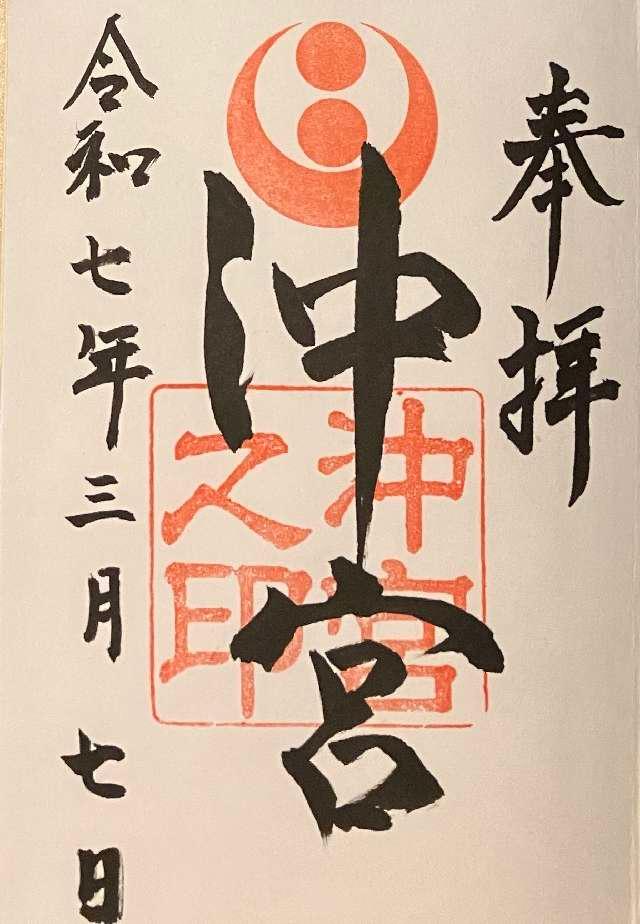 奉拝
沖宮
沖宮
之印
令和七年三月七日